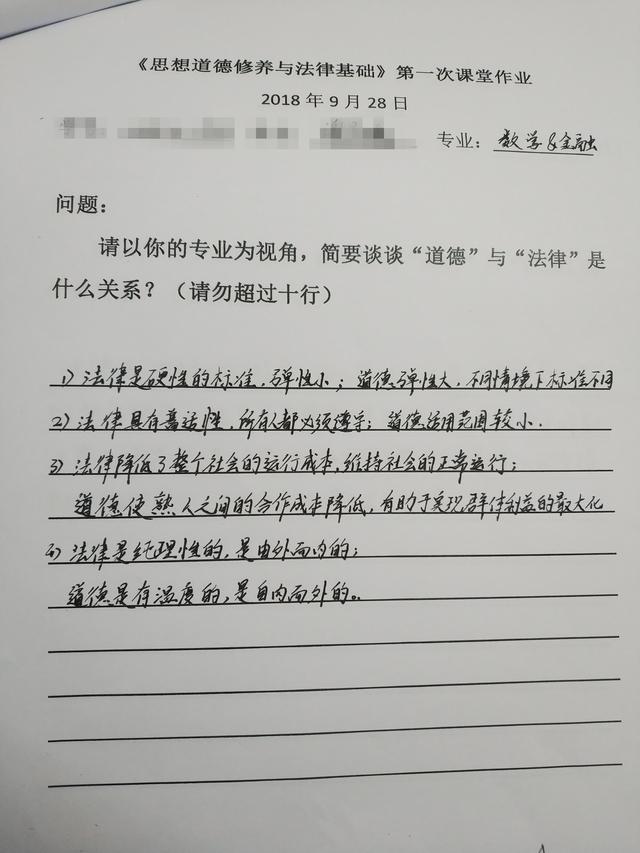 《思想道德修养与法律基础》第一次课堂作业
2018年9月28日
专业：数学&金融
问题：
请以你的专业为视角，简要谈谈“道德”与“法律”是
什么关系？（请勿超过十行）
1) 法律是硬性的标准，弹性小；道德弹性大，不同情境下标准不同
2) 法律具有普适性，所有人都必须遵守；道德适用范围较小.
3) 法律降低了整个社会的运行成本，维持社会的正常运行；
道德使熟人之间的合作成本降低，有助于实现群体利益的最大化
4) 法律是纯理性的，是由外而内的；
道德是有温度的，是自内而外的。